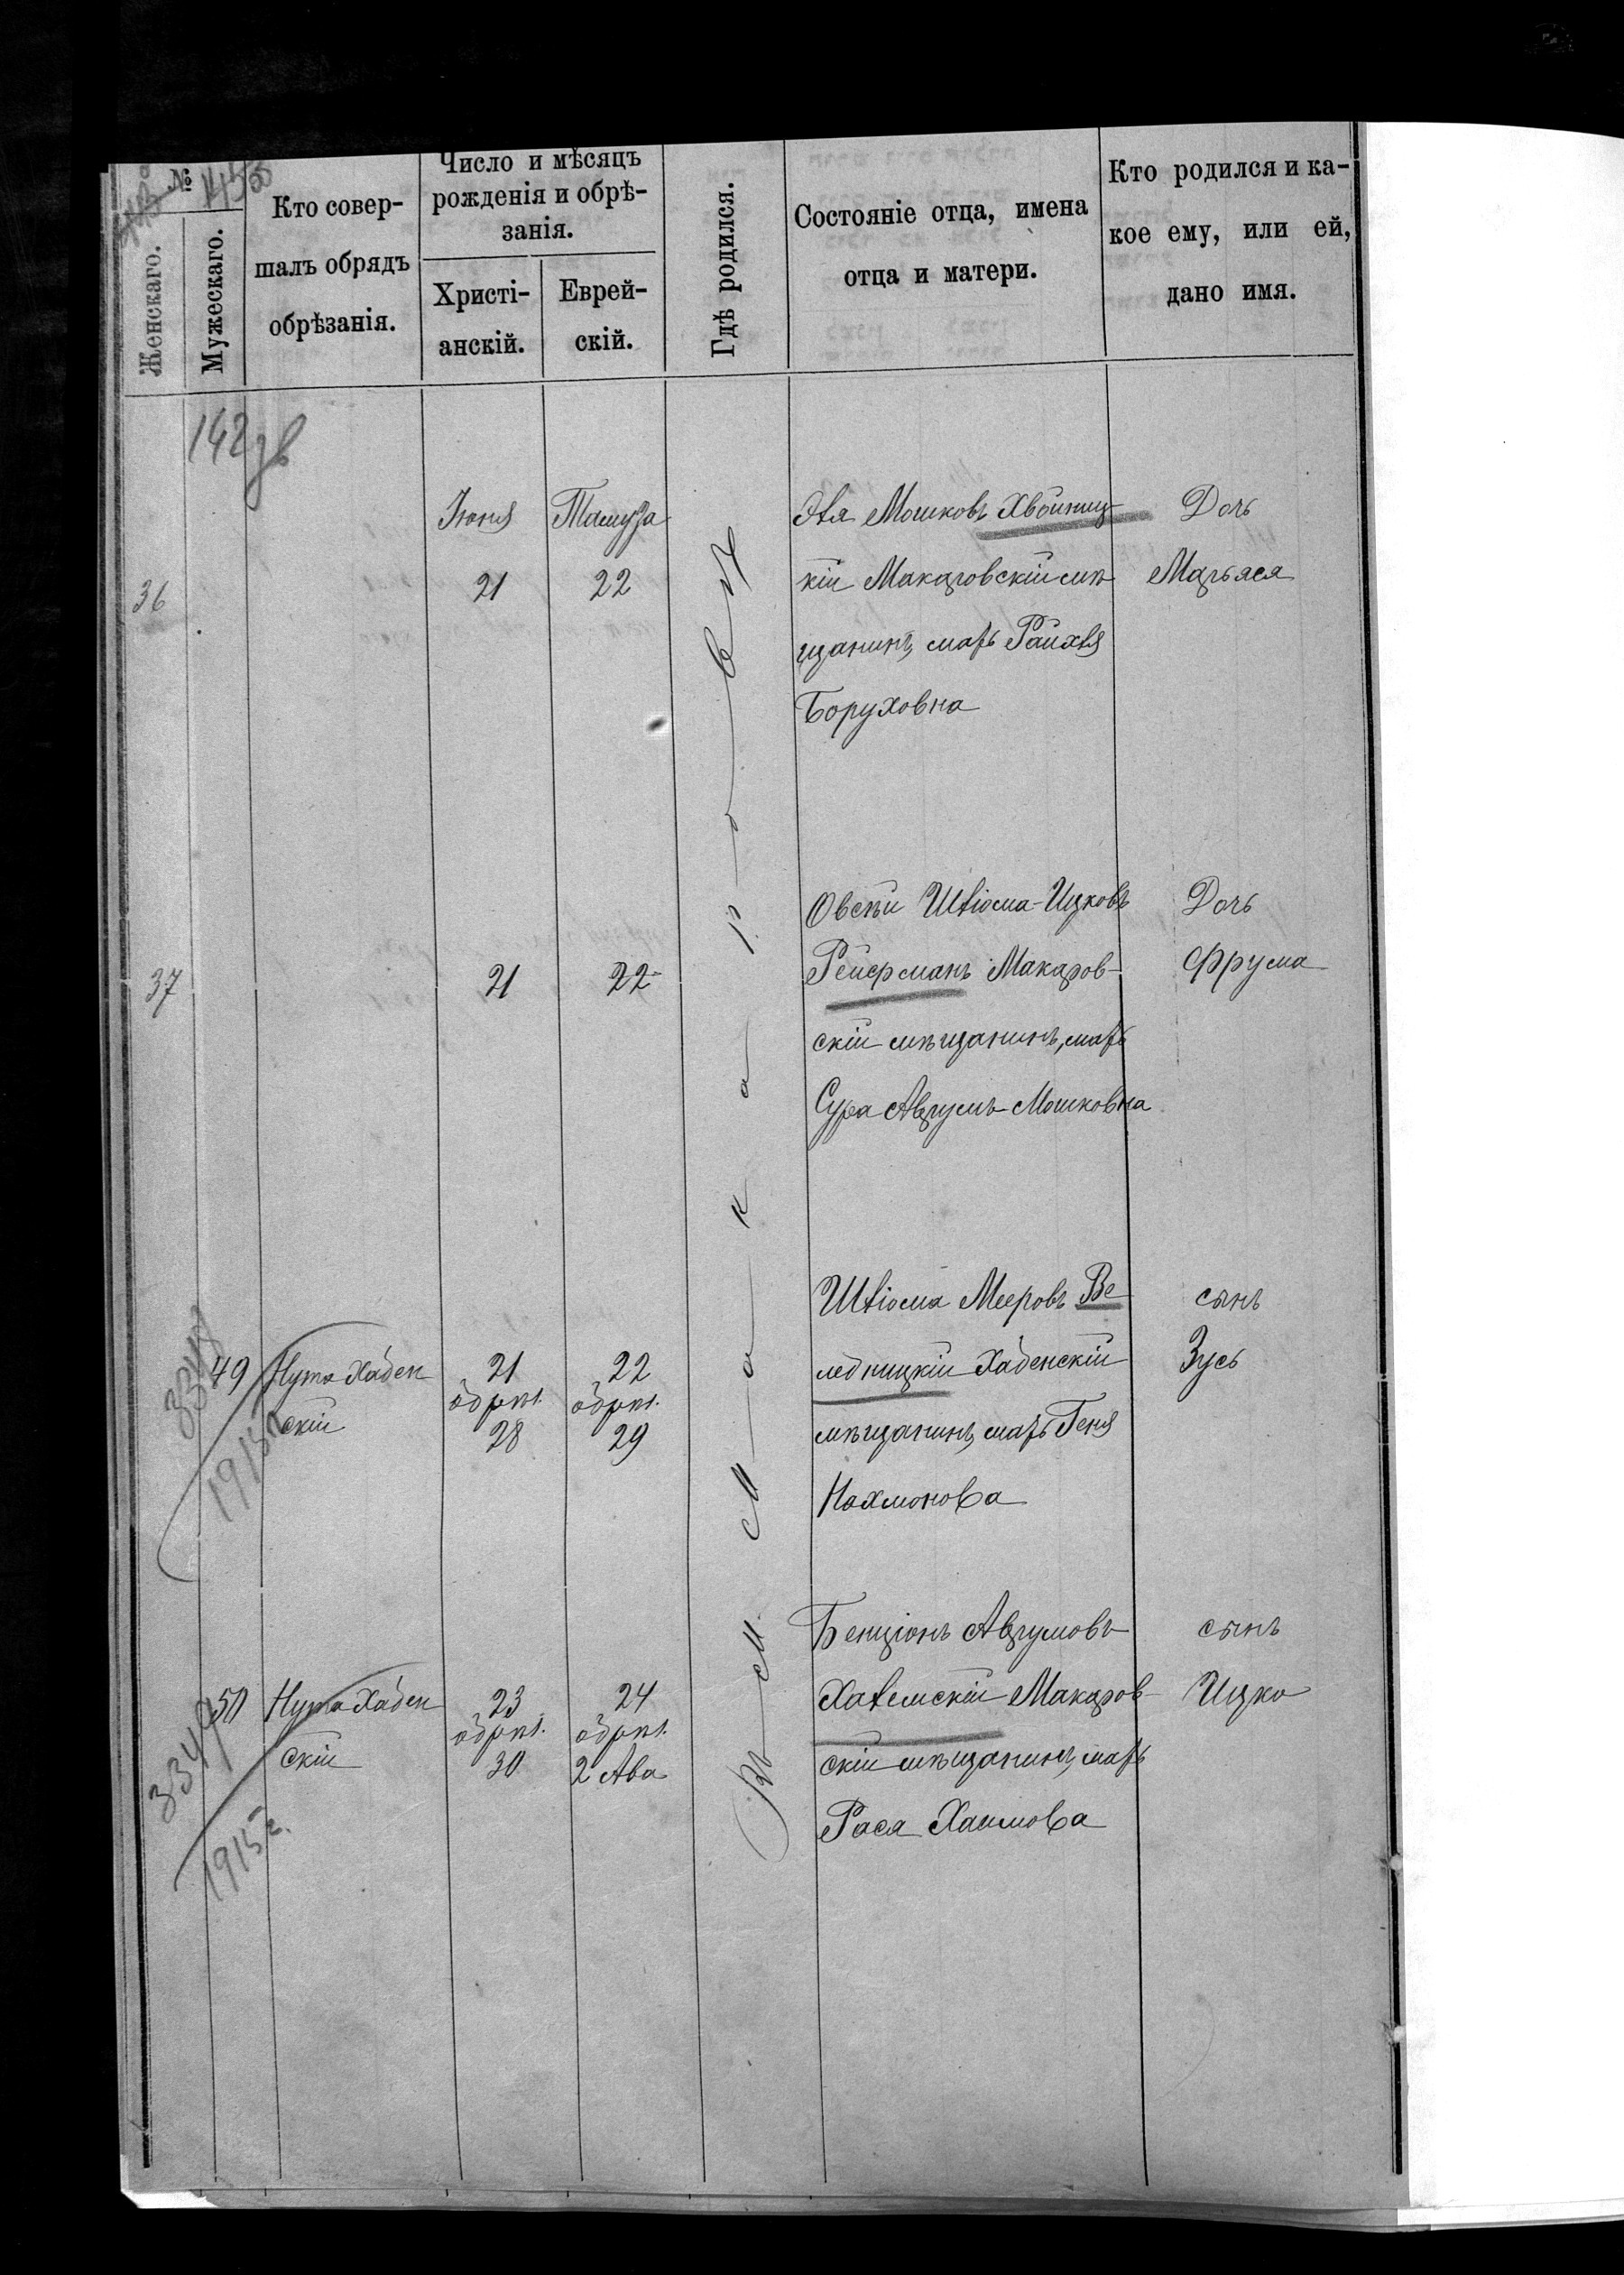 №
Женскаго.
Мужескаго.
Кто совер-
шалъ обрядъ
обрѣзанія.
Число и мѣсяцъ
рожденія и обрѣ-
занія.
Христі-
анскій.
Еврей-
скій.
Гдѣ родился.
Состояніе отца, имена
отца и матери.
Кто родился и ка-
кое ему, или ей,
дано имя.
142
Въ м. Макаровѣ
36
Іюня
21
Тамуза
22
Мошковъ Хвойниц-
кій Макаровскій мѣ-
щанинъ, мать Райхля
Боруховна
Дочь
Марьяся
37
21
22
Овсѣй Шліома-Ицковъ
Рейфманъ Макаров-
скій мѣщанинъ, мать
Сура Аврумъ-Мошковна
Дочь
Фрума
3348
1915
49
Нута Хабен
скій
21
обрѣз.
28
22
обрѣз.
29
Шліома Мееровъ Ве
ледницкій Хабенскій
мѣщанинъ, мать Геня
Нахмонова
сынъ
Зусь
3349
1915 г.
50
Нута Хабен
скій
23
обрѣз.
30
24
обрѣз.
2 Ава
Бенціонъ Аврумовъ
Хавемскій Макаров-
скій мѣщанинъ, мать
Рася Хаимова
сынъ
Ицко